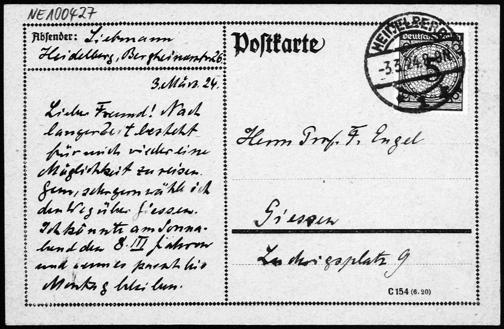 NE100427
Absender: Liebmann
Heidelberg, Bergheimerstr 26
3. März. 24.
Lieber Freund! Nach
langer Zeit besteht
für mich wieder eine
Möglichkeit zu reisen.
Gern, sehr gern wähle ich
den Weg über Giessen.
Ich könnte am Sonna-
bend den 8. III fahren
und wenns passt bis
Montag bleiben.
Postkarte
HEIDELBERG
3.3.24
Deutsches
5
Herrn Prof. F. Engel
Giessen
Ludwigsplatz 9
C 154 (6. 20)